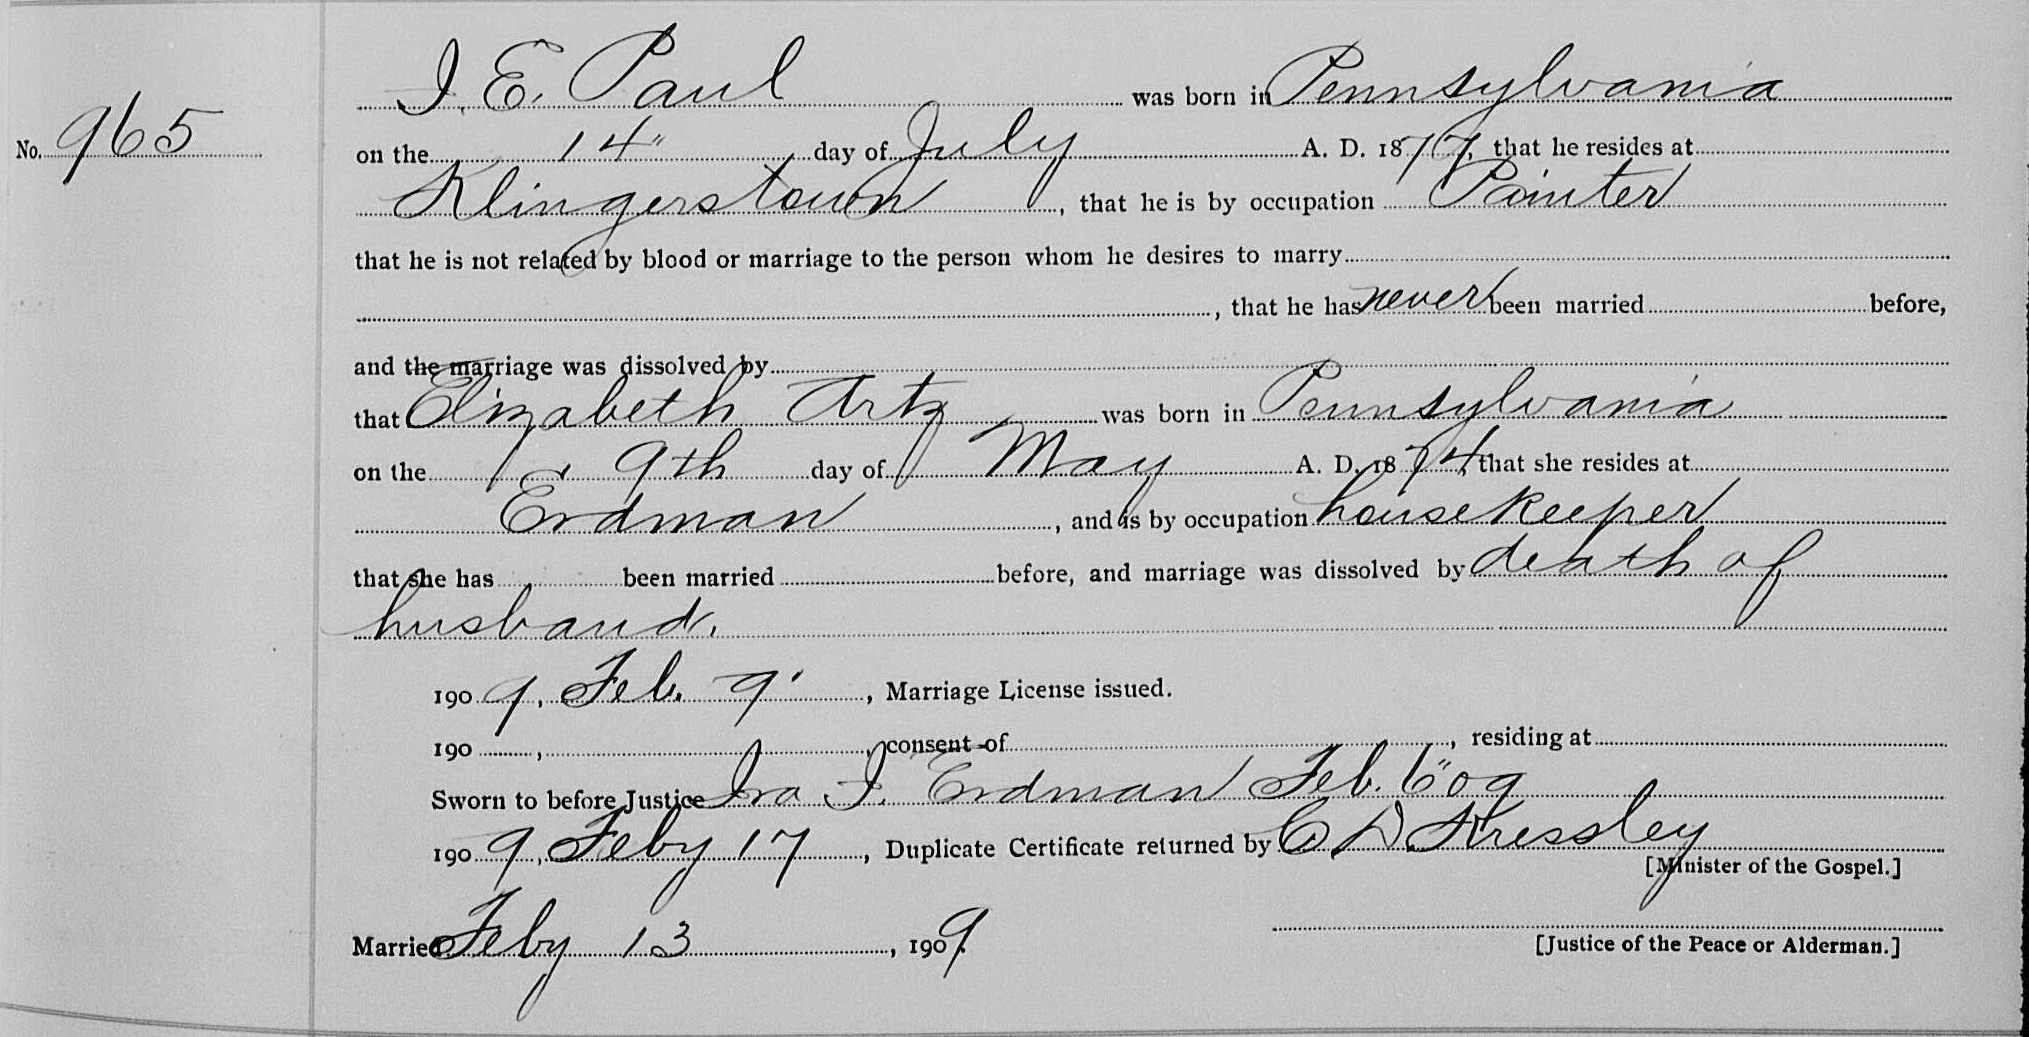 I. E. Paul was born in Pennsylvania
No. 965
on the 14" day of July A. D. 1877, that he resides at
Klingerstown, that he is by occupation Painter
that he is not related by blood or marriage to the person whom he desires to marry
, that he has never been married before,
and the marriage was dissolved by
that Elizabeth Artz was born in Pennsylvania
on the 9th day of May A. D. 1874, that she resides at
Erdman, and is by occupation housekeeper
that she has been married before, and marriage was dissolved by death of
husband.
1909, Feb. 9', Marriage License issued.
190 , , consent of , residing at
Sworn to before Justice Ira I. Erdman Feb. 6" 09
1909, Feby 17, Duplicate Certificate returned by C D Kressley
[Minister of the Gospel.]
Married Feby 13, 1909.
[Justice of the Peace or Alderman.]